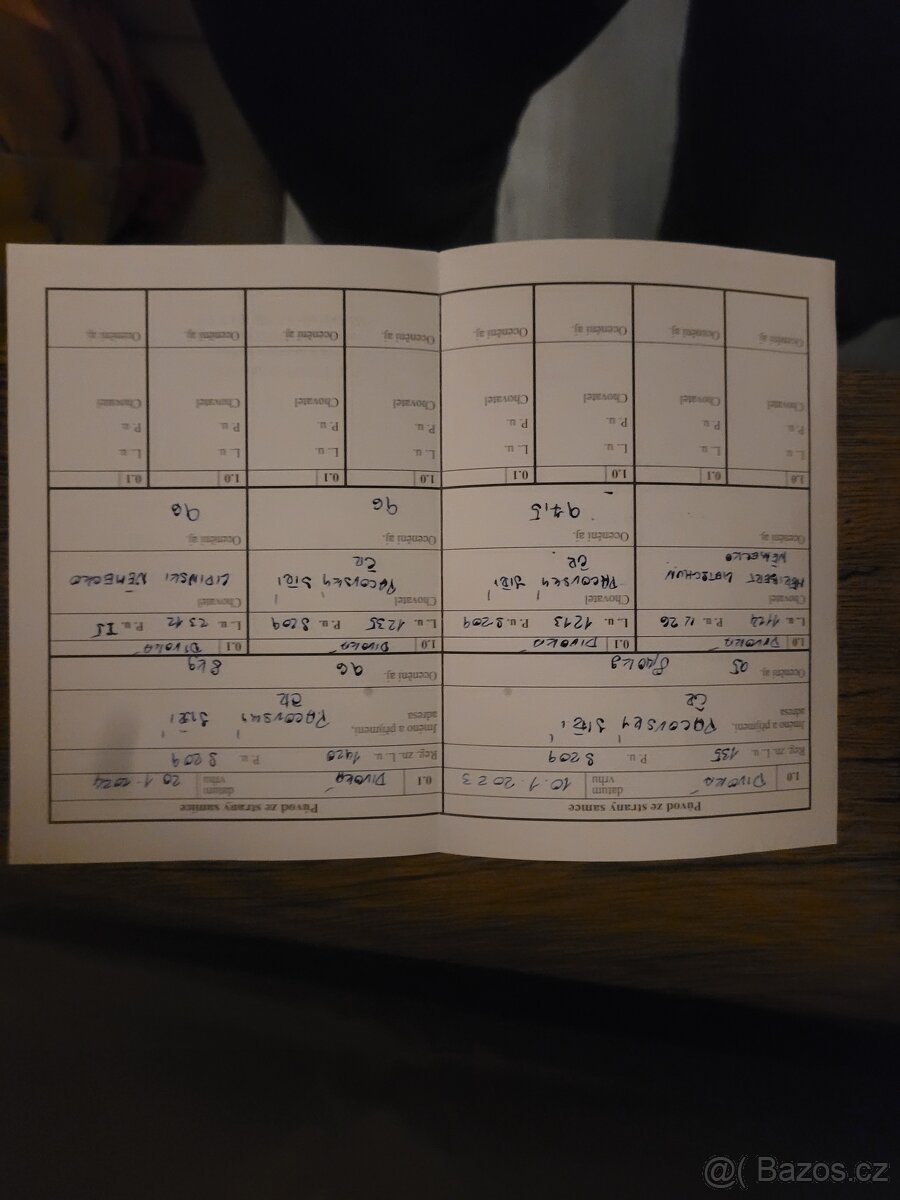 Původ ze strany samce
1.0 DIVOKÁ datum vrhu 10.1.2023
Reg. zn. L. u. 135 P. u. S209
Jméno a příjmení, adresa PACOVSKÝ JIŘÍ
ČR
Ocenění aj. 95
1.0 DIVOKÁ 0.1 DIVOKÁ
L. u. 1124 P. u. L. u. 1213 P. u. S209
Chovatel HERIBERT Chovatel PACOVSKÝ JIŘÍ
NĚMECKO ČR
Ocenění aj. Ocenění aj. 97,5
1.0 0.1 1.0 0.1
L. u. L. u. L. u. L. u.
P. u. P. u. P. u. P. u.
Chovatel Chovatel Chovatel Chovatel
Ocenění aj. Ocenění aj. Ocenění aj. Ocenění aj.
Původ ze strany samice
0.1 DIVOKÁ datum vrhu 20.1.2024
Reg. zn. L. u. 1420 P. u. S209
Jméno a příjmení, adresa PACOVSKÝ JIŘÍ
ČR
Ocenění aj. 96 8kg
1.0 DIVOKÁ 0.1 DIVOKÁ
L. u. 1235 P. u. S209 L. u. 2312 P. u.
Chovatel PACOVSKÝ JIŘÍ Chovatel LIPINSKI NĚMECKO
ČR
Ocenění aj. 96 Ocenění aj. 96
1.0 0.1 1.0 0.1
L. u. L. u. L. u. L. u.
P. u. P. u. P. u. P. u.
Chovatel Chovatel Chovatel Chovatel
Ocenění aj. Ocenění aj. Ocenění aj. Ocenění aj.
@( Bazos.cz